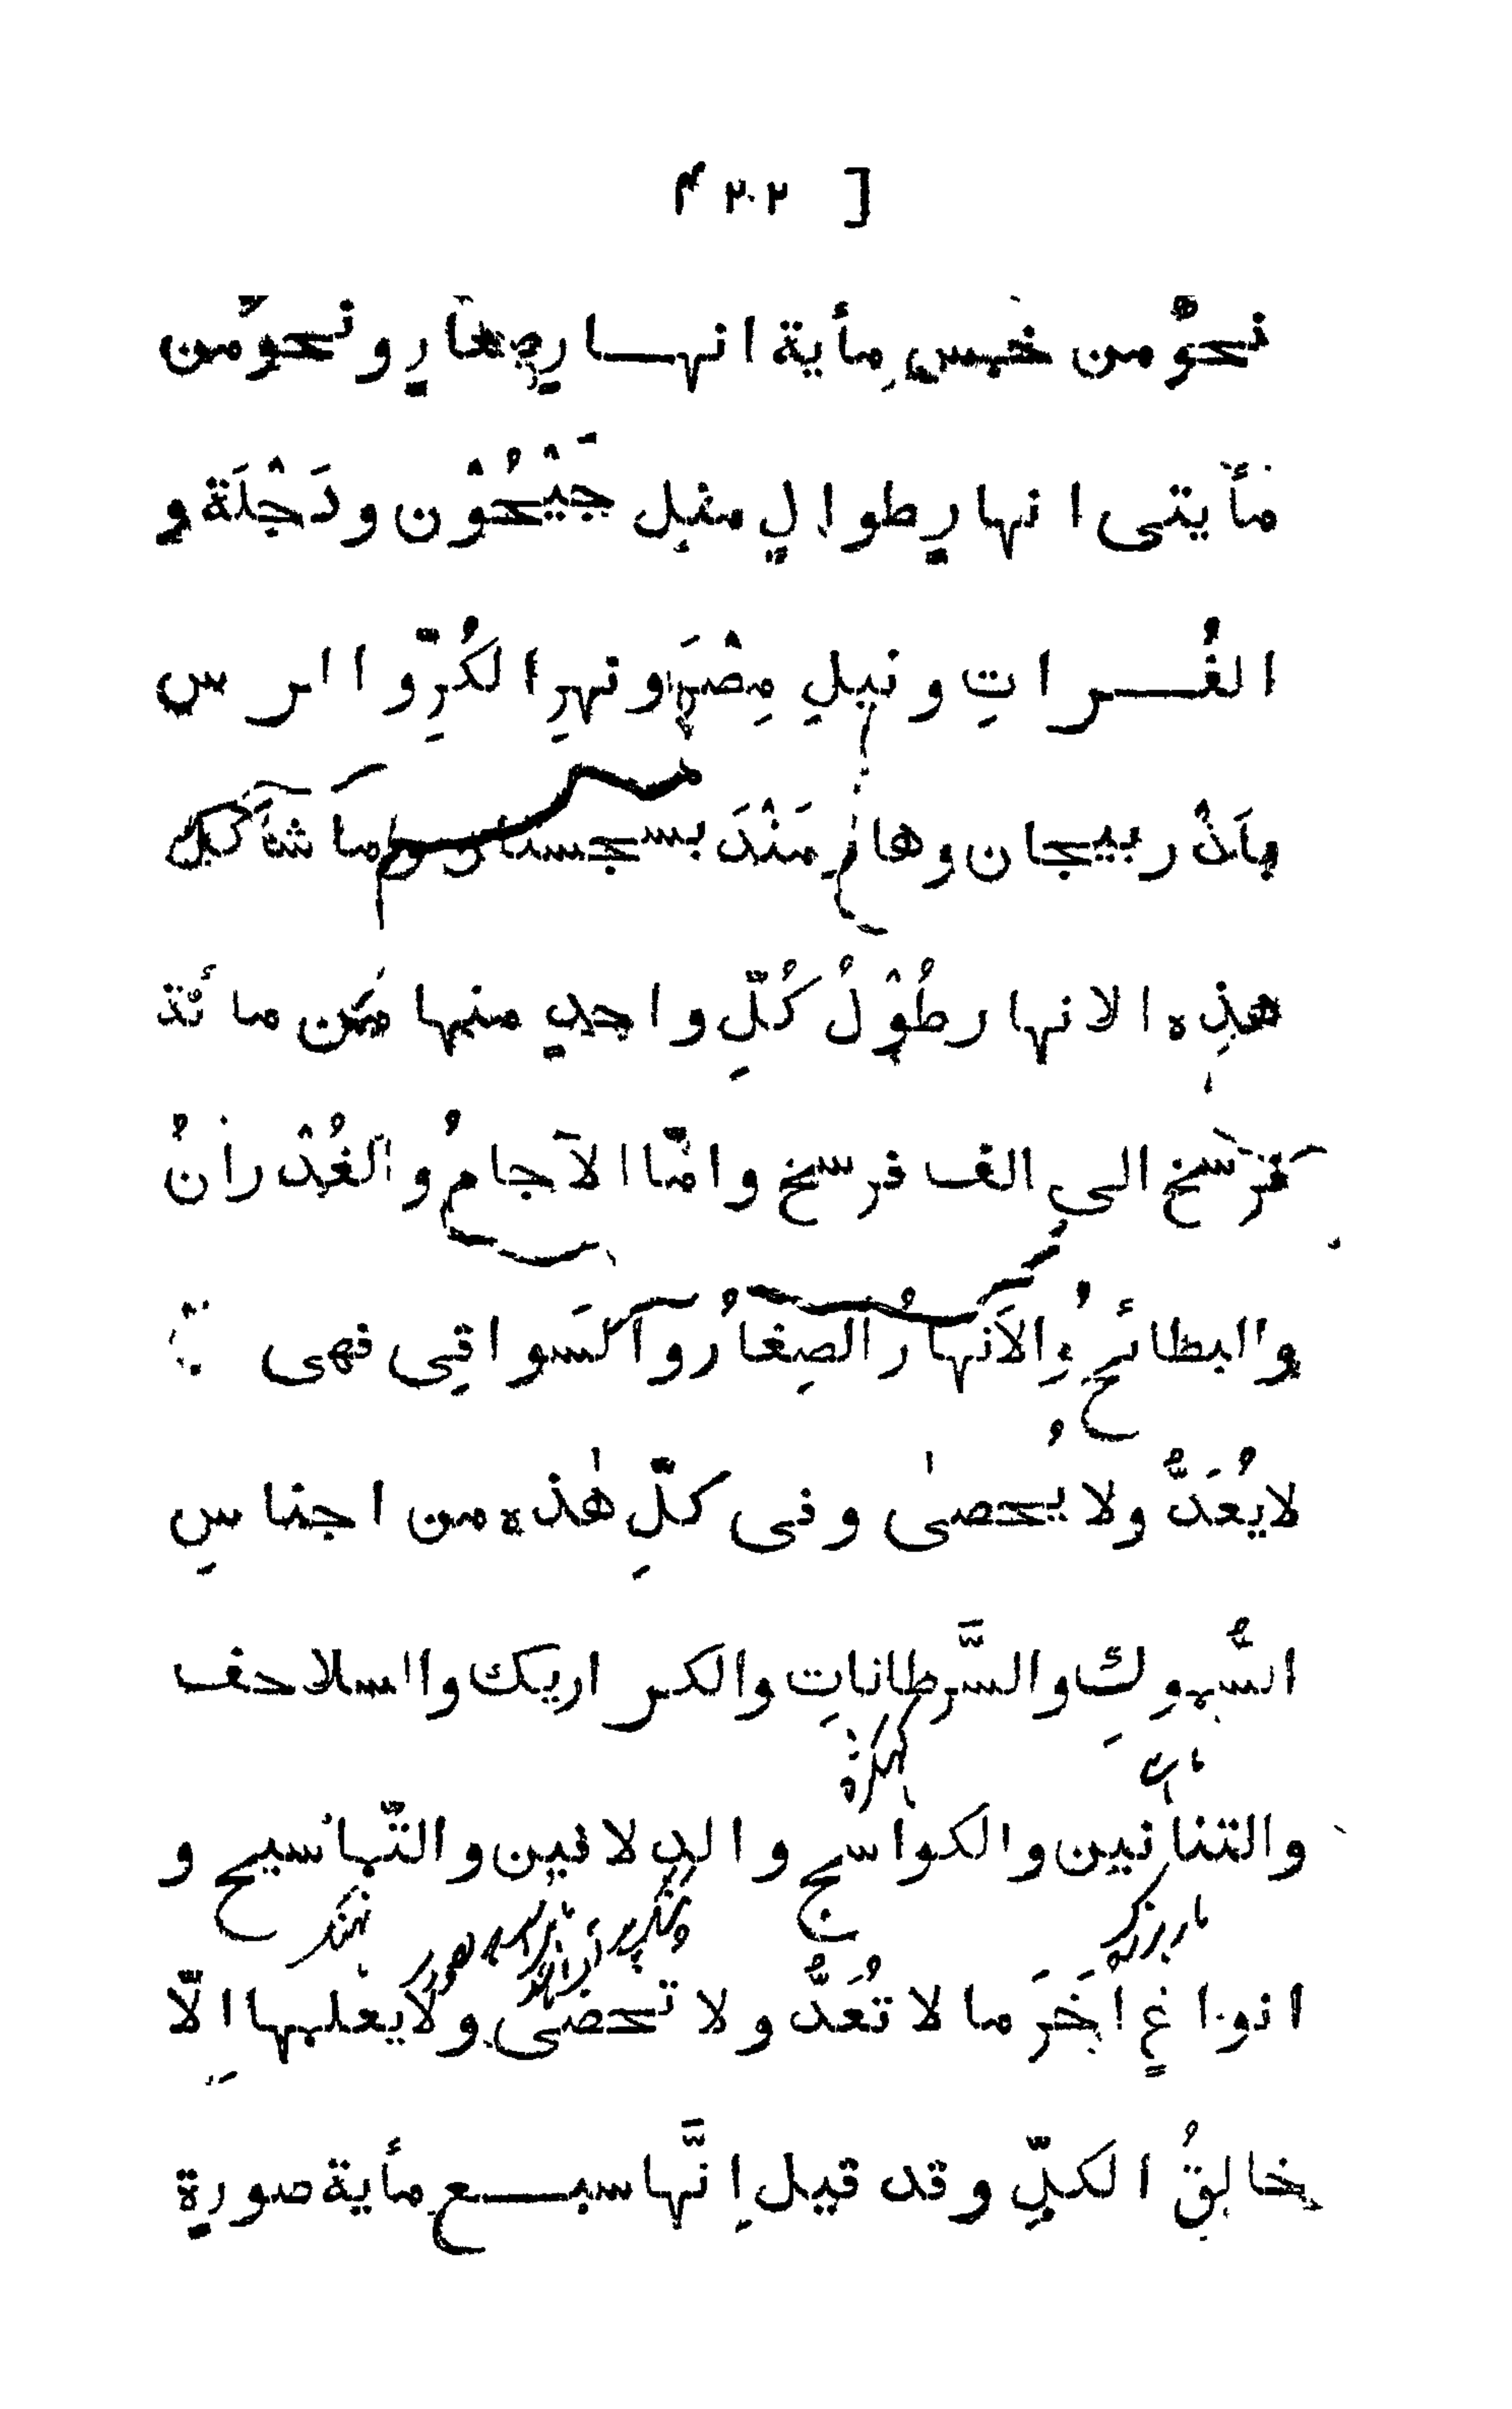 [ ٢٠٢
نحوٌ من خمسِ مأية انهارٍ صغارٍ ونحوٌ من
مأيتى انهارٍ طوالٍ مثلِ جَيْحُوْن ودَجْلَة و
الفُراتِ ونيلِ مِصْرَ ونهرِ الكُرِّ والرس
بآذْربيجان وهارمَنْدَ بسجستان وما شاكل
هذِه الانهار طُوْلُ كُلِّ واحدٍ منها من مائة
فَرْسَخ الى الف فرسخ وامّا الآجامُ والغُدْرانُ
والبطائحُ والاَنهارُ الصِغارُ والسَواقِى فهى
لايُعَدُّ ولا يُحصىٰ وفى كلِّ هٰذه من اجناسِ
السُّموكِ والسَّرطاناتِ والكراريك والسلاحف
ماہى
والتنانين والكواسج والدلافين والتّماسيح و
نہنگ
انواعٍ اُخَرَ ما لا تُعَدُّ ولا تحصى ولايعلمها اِلّا
خالقُ الكلِّ وقد قيل اِنَّها سبع مأية صورةٍ